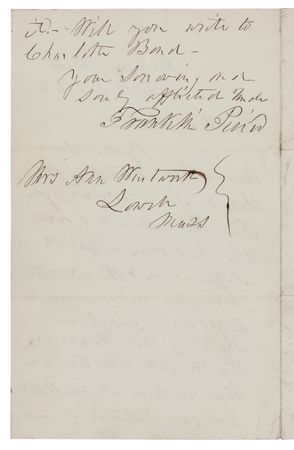 it - Will you write to
Charlotte Bond -
Your Sorrowing, and
sorely afflicted
Franklin Pierce
Mrs Ann Wentworth
Lowell
Mass